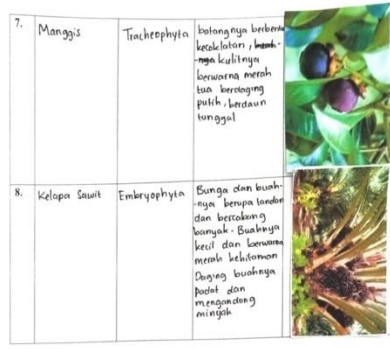 7.
Manggis
Tracheophyta
batangnya
kecoklatan,
-nya kulitnya
berwarna merah
tua berdaging
putih, berdaun
tunggal
8.
Kelapa Sawit
Embryophyta
Bunga dan buah-
-nya berupa tandan
dan bercabang
banyak. Buahnya
kecil dan berwarna
merah kehitaman
Daging buahnya
padat dan
mengandong
minyak